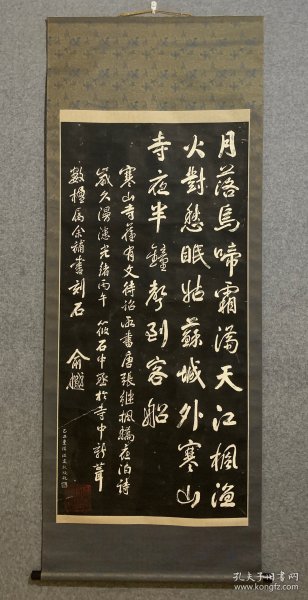 月落烏啼霜滿天江楓漁
火對愁眠姑蘇城外寒山
寺夜半鐘聲到客船
寒山寺舊有文待詔所書唐張繼楓橋夜泊詩
歲久漫漶光緒丙午 筱石中丞於寺中新葺
數楹屬余補書刻石
俞樾
孔夫子旧书网